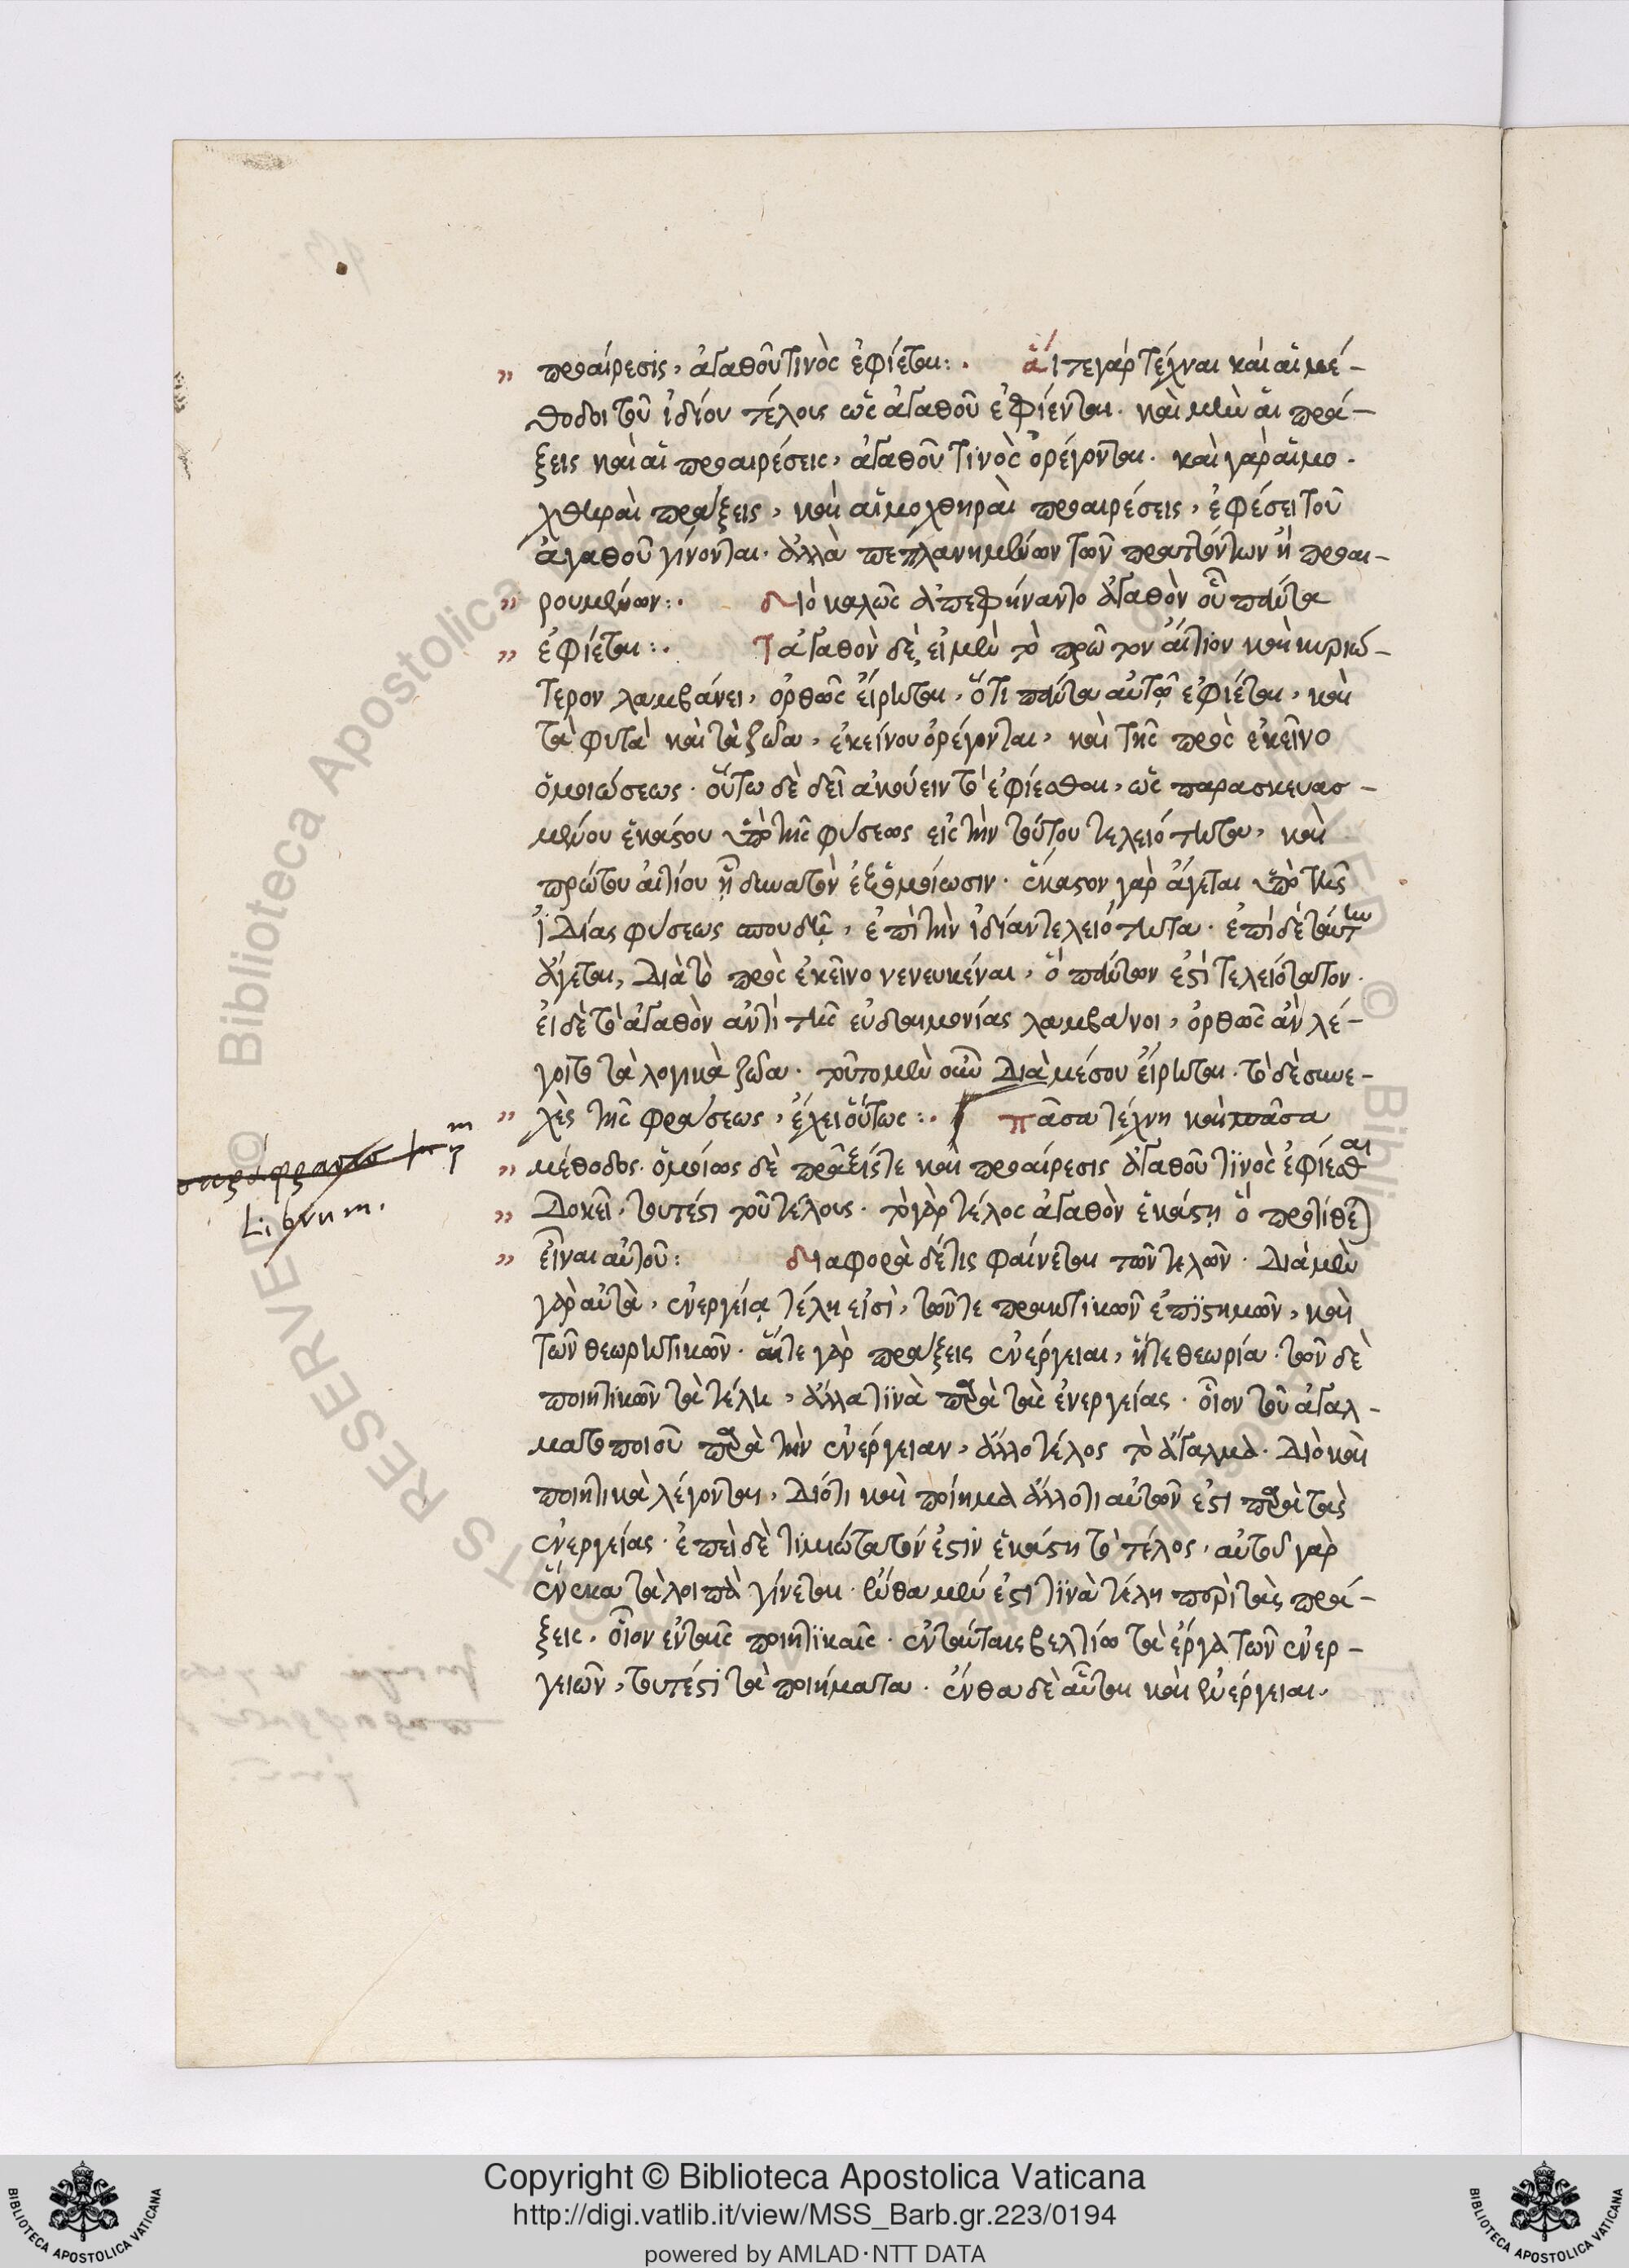 προαίρεσις, ἀγαθοῦ τινὸς ἐφίεται:. αἵ τε γὰρ τέχναι καὶ αἱ μέ-
θοδοι τοῦ ἰδίου τέλους ὡς ἀγαθοῦ ἐφίενται. καὶ μὴν αἱ πρά-
ξεις καὶ αἱ προαιρέσεις, ἀγαθοῦ τινὸς ὀρέγονται. καὶ γὰρ αἱ μο-
χθηραὶ πράξεις, καὶ αἱ μοχθηραὶ προαιρέσεις, ἐφέσει τοῦ
ἀγαθοῦ γίνονται. ἀλλὰ πεπλανημένων τῶν πραττόντων ἢ προαι-
ρουμένων:. διὸ καλῶς ἀπεφήναντο ἀγαθὸν οὗ πάντα
ἐφίεται:. τἀγαθὸν δὲ, εἰ μὲν τὸ πρῶτον αἴτιον καὶ κυριώ-
τερον λαμβάνει, ὀρθῶς εἴρηται, ὅτι πάντα αὐτοῦ ἐφίεται, καὶ
τὰ φυτὰ καὶ τὰ ζῶα, ἐκείνου ὀρέγονται, καὶ τῆς πρὸς ἐκεῖνο
ὁμοιώσεως. οὕτω δὲ δεῖ ἀκούειν τὸ ἐφίεσθαι, ὡς παρασκευασ-
μένου ἑκάστου ὑπὸ τῆς φύσεως εἰς τὴν τούτου τελειότητα, καὶ
πρώτου αἰτίου ᾗ δυνατὸν ἐξομοίωσιν. ἕκαστον γὰρ ἄγεται ὑπὸ τῆς
ἰδίας φύσεως σπουδῇ, ἐπὶ τὴν ἰδίαν τελειότητα. ἐπὶ δὲ ταύτην
ἄγεται, διὰ τὸ πρὸς ἐκεῖνο νενευκέναι, ὃ πάντων ἐστὶ τελειότατον.
εἰ δὲ τὸ ἀγαθὸν ἀντὶ τῆς εὐδαιμονίας λαμβάνοι, ὀρθῶς ἂν λέ-
γοιτο τὰ λογικὰ ζῶα. τοῦτο μὲν οὖν διὰ μέσου εἴρηται. τὸ δὲ συνε-
χὲς τῆς φράσεως, ἔχει οὕτως:. πᾶσα τέχνη καὶ πᾶσα
μέθοδος. ὁμοίως δὲ πρᾶξίς τε καὶ προαίρεσις ἀγαθοῦ τινὸς ἐφίεσθαι
δοκεῖ, τουτέστι τοῦ τέλους. τὸ γὰρ τέλος ἀγαθὸν ἑκάστῃ ὃ προτίθεται
εἶναι αὐτοῦ: διαφορὰ δέ τις φαίνεται τῶν τελῶν. διὰ μὲν
γὰρ αὐτὰ, ἐνεργείᾳ τέλη εἰσὶ, τῶν τε πρακτικῶν ἐπιστημῶν, καὶ
τῶν θεωρητικῶν. αἵ τε γὰρ πράξεις ἐνέργειαι, ἥ τε θεωρία. τῶν δὲ
ποιητικῶν τὰ τέλη, ἄλλα τινὰ παρὰ τὰς ἐνεργείας. οἷον τοῦ ἀγαλ-
ματοποιοῦ παρὰ τὴν ἐνέργειαν, ἄλλο τέλος τὸ ἄγαλμα. διὸ καὶ
ποιητικὰ λέγονται, διότι καὶ ποίημα ἄλλο τι αὐτῶν ἐστι παρὰ τὰς
ἐνεργείας. ἐπεὶ δὲ τιμιώτατόν ἐστιν ἑκάστῃ τὸ τέλος, αὐτοῦ γὰρ
ἕνεκα τὰ λοιπὰ γίνεται. ἔνθα μέν ἐστι τινὰ τέλη παρὰ τὰς πρά-
ξεις, οἷον ἐν ταῖς ποιητικαῖς. ἐν ταύταις βελτίω τὰ ἔργα τῶν ἐνερ-
γειῶν, τουτέστι τὰ ποιήματα. ἔνθα δὲ αὗται καὶ ἐνέργειαι.
Librum.
Copyright © Biblioteca Apostolica Vaticana
http://digi.vatlib.it/view/MSS_Barb.gr.223/0194
powered by AMLAD·NTT DATA